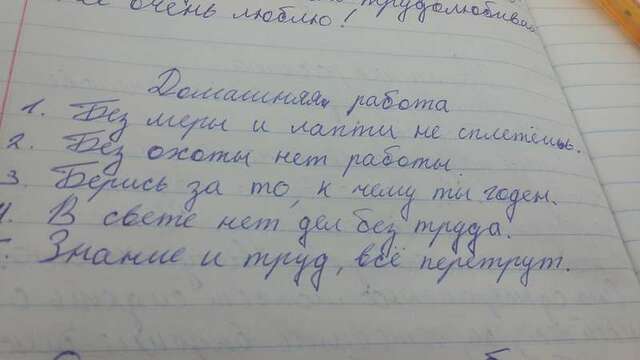 очень люблю! трудолюбивая
Домашняя работа
1. Без меры и лапти не сплетёшь.
2. Без охоты нет работы.
3. Берись за то, к чему ты годен.
4. В свете нет дел без труда.
5. Знание и труд, всё перетрут.